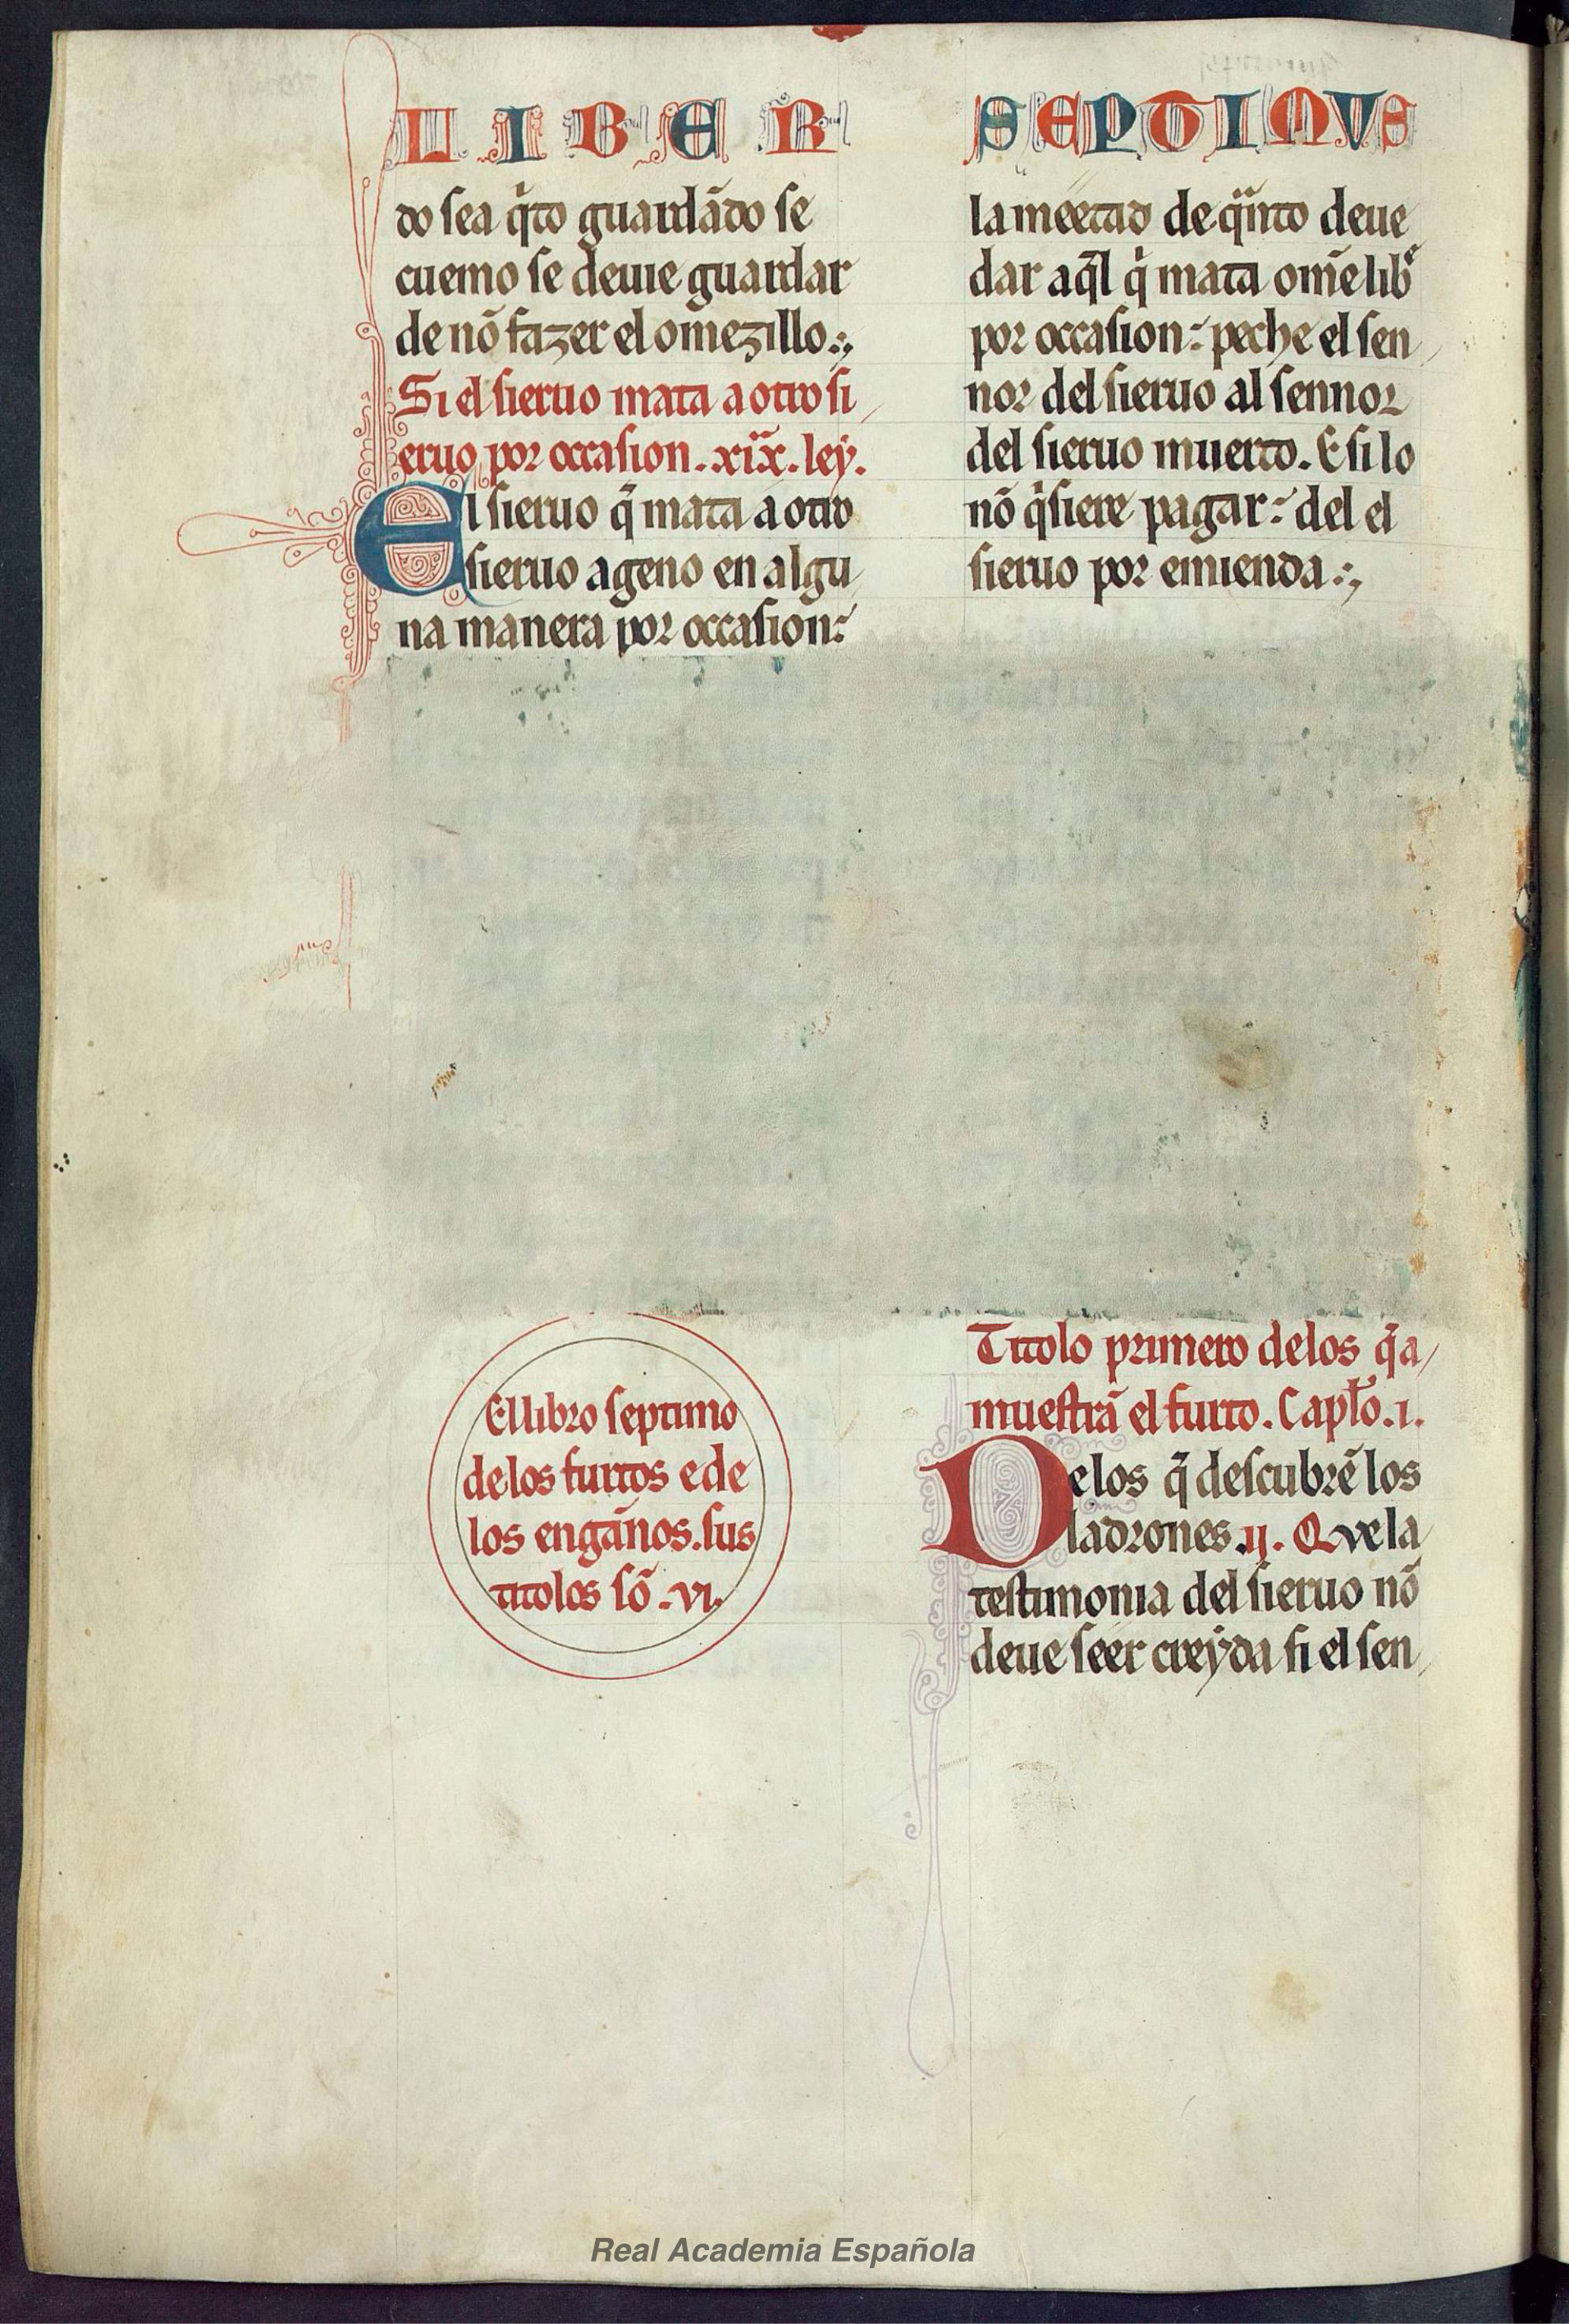 LIBER SEPTIMUS
do sea q̇to guardãdo se
cuemo se deuie guardar
de nõ fazer el omezillo.
Si el sieruo mata a otro si
eruo por occasion. xix. ley.
El sieruo q̃ mata a otro
sieruo ageno en algu
na manera por occasion:
la meetad de quãto deue
dar aq̃l q̇ mata om̃e lib̾
por occasion: peche el sen
nor del sieruo al sennor
del sieruo muerto. E si lo
nõ q̇siere pagar: del el
sieruo por emienda.
El libro septimo
de los furtos e de
los engãnos. sus
titolos sõ .vi.
Titolo primero delos q̃ a
muestrã el furto. Caplo .i.
Delos q̃ descubrẽ los
ladrones .ii. Que la
testimonia del sieruo nõ
deue seer creyda si el sen
Real Academia Española